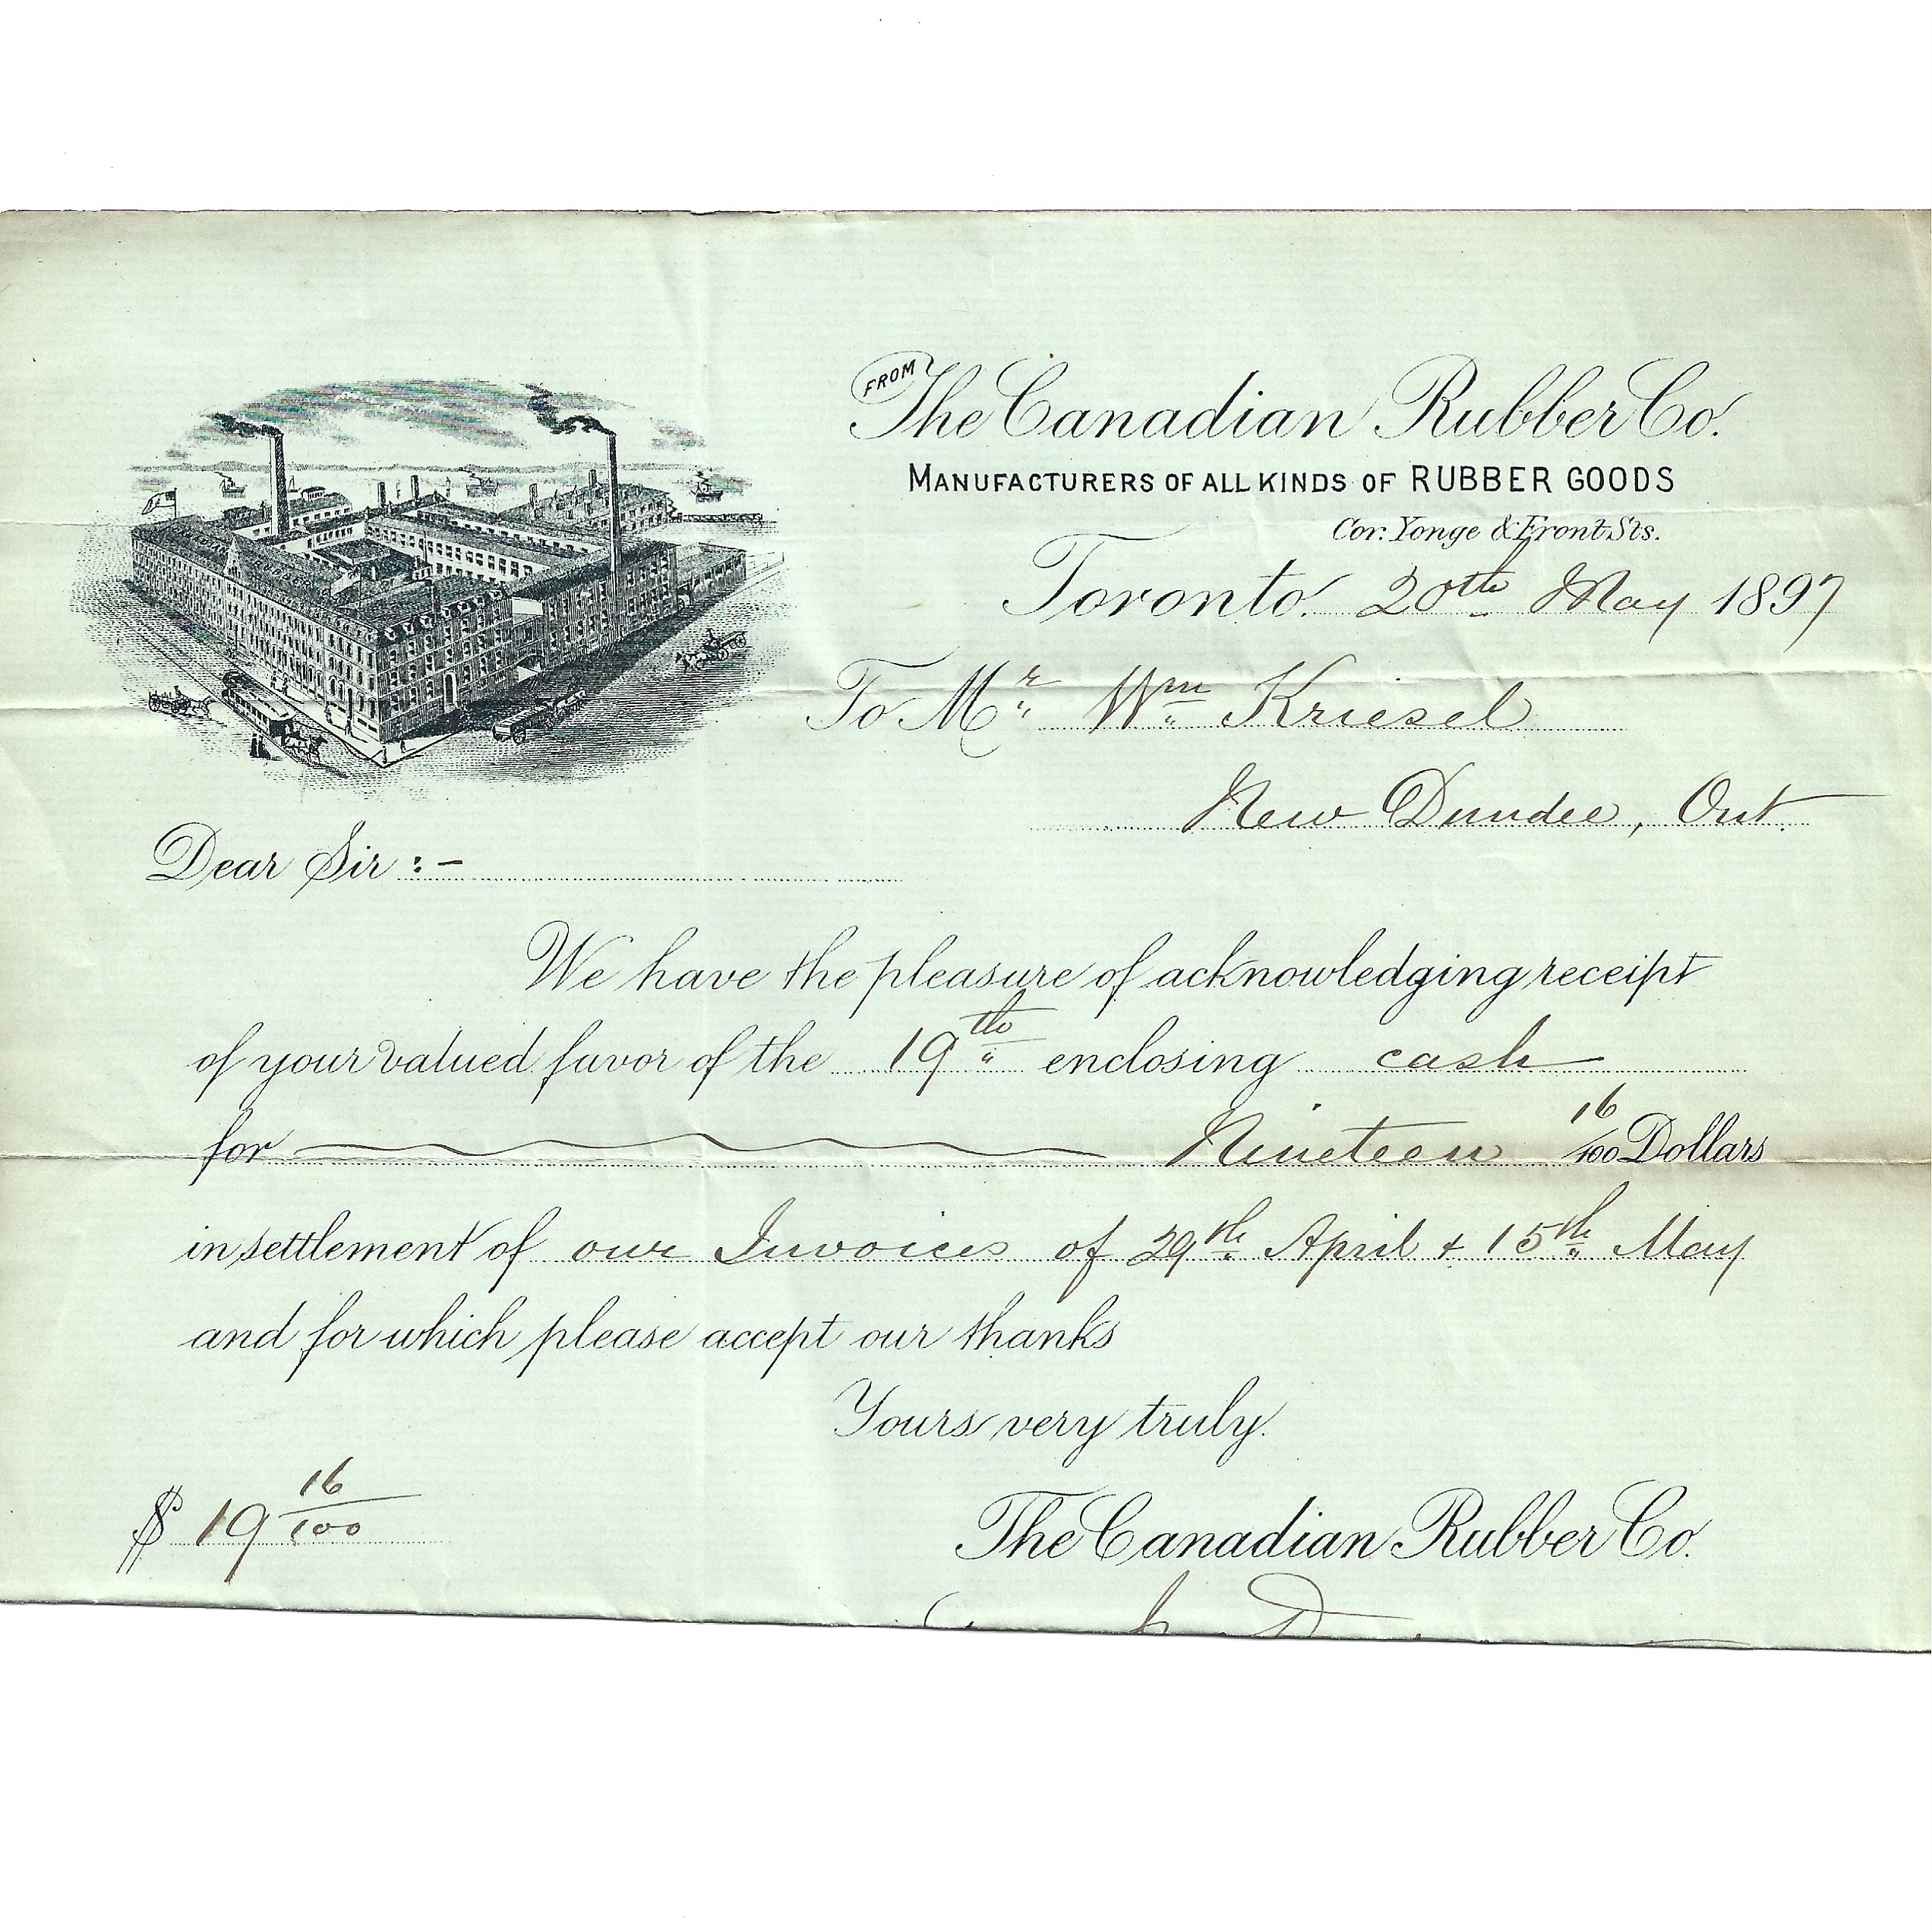 FROM
The Canadian Rubber Co.
MANUFACTURERS OF ALL KINDS OF RUBBER GOODS
Cor: Yonge & Front Sts.
Toronto. 20th May 1897
To Mr Wm Kriesel
New Dundee, Ont.
Dear Sir :-
We have the pleasure of acknowledging receipt
of your valued favor of the 19th enclosing cash
for Nineteen 16/100 Dollars
in settlement of our Invoices of 29th April + 15th May
and for which please accept our thanks
Yours very truly.
$ 19 16/100
The Canadian Rubber Co.